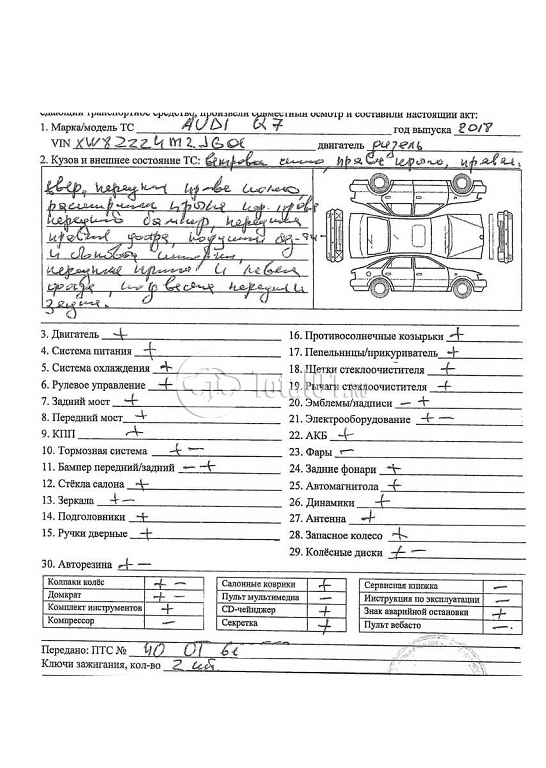 едающий транспортное средство, произвели совместный осмотр и составили настоящий акт:
1. Марка/модель ТС AUDI Q7 год выпуска 2018
VIN двигатель дизель
2. Кузов и внешнее состояние ТС: правое крыло, правая
передняя правая
передний бампер, передняя
правая фара, подушки
и
переднее правое и левая
фара, подвеска передняя и
задняя.
3. Двигатель +
4. Система питания +
5. Система охлаждения +
6. Рулевое управление +
7. Задний мост +
8. Передний мост +
9. КПП +
10. Тормозная система + −
11. Бампер передний/задний − +
12. Стёкла салона +
13. Зеркала + −
14. Подголовники +
15. Ручки дверные +
16. Противосолнечные козырьки +
17. Пепельницы/прикуриватель +
18. Щетки стеклоочистителя +
19. Рычаги стеклоочистителя +
20. Эмблемы/надписи − +
21. Электрооборудование + −
22. АКБ +
23. Фары −
24. Задние фонари +
25. Автомагнитола +
26. Динамики +
27. Антенна +
28. Запасное колесо +
29. Колёсные диски + −
30. Авторезина + −
Колпаки колёс + −
Домкрат + −
Комплект инструментов +
Компрессор −
Салонные коврики +
Пульт мультимедиа −
CD-чейнджер +
Секретка +
Сервисная книжка −
Инструкция по эксплуатации −
Знак аварийной остановки +
Пульт вебасто −
Передано: ПТС № 40
Ключи зажигания, кол-во 2 шт.